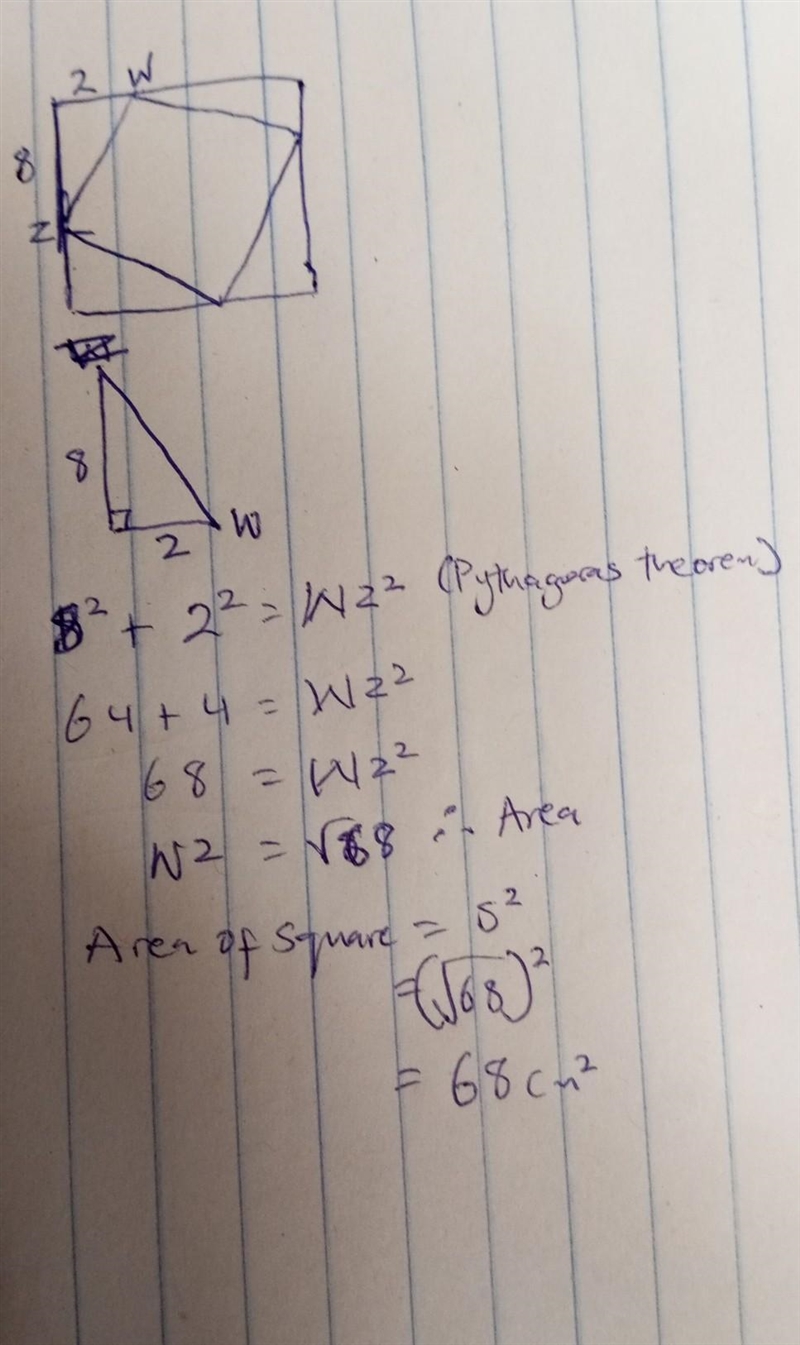 2 W
8
Z
8
W
2
8² + 2² = WZ² (Pythagoras theorem)
64 + 4 = WZ²
68 = WZ²
WZ = √68 ∴ Area
Area of Square = S²
= (√68)²
= 68cm²